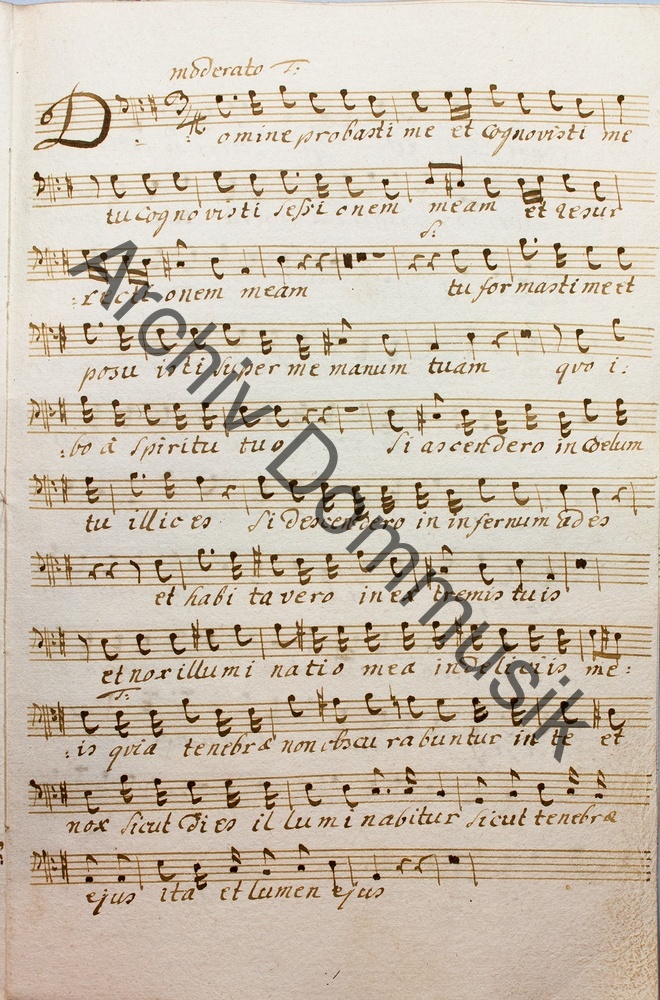 moderato T:
Domine probasti me et cognovisti me
tu cognovisti sessionem meam et resur
S:
:rectionem meam tu formasti me et
posuisti super me manum tuam qvo i:
:bo a spiritu tuo si ascendero in coelum
tu illic es si descendero in infernum ades
et habitavero in extremis tuis
et nox illuminatio mea in deliciis me:
T:
:is qvia tenebræ non obscurabuntur in te et
nox sicut dies illuminabitur sicut tenebræ
ejus ita et lumen ejus
Archiv Dommusik